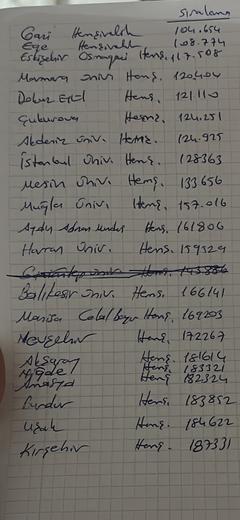 Sıralama
Gazi Hemşirelik 104.654
Ege Hemşirelik 108.774
Eskişehir Osmangazi Hemş. 117.508
Marmara Üniv Hemş. 120404
Dokuz Eylül Hemş. 121110
Çukurova Hemş. 124.251
Akdeniz Üniv. Hemş. 124.925
İstanbul Üniv. Hemş. 128363
Mersin Üniv. Hemş. 133656
Muğla Üniv. Hemş. 157.016
Aydın Adnan Hemş. 161806
Harran Üniv. Hemş. 159929
Gaziantep Üniv Hemş. 143886
Balıkesir Üniv. Hemş. 166141
Manisa Celal Bayar Hemş. 169203
Nevşehir Hemş. 172267
Aksaray Hemş. 181614
Niğde Hemş. 183321
Amasya Hemş. 182324
Burdur Hemş. 183852
Uşak Hemş. 184622
Kırşehir Hemş. 187331